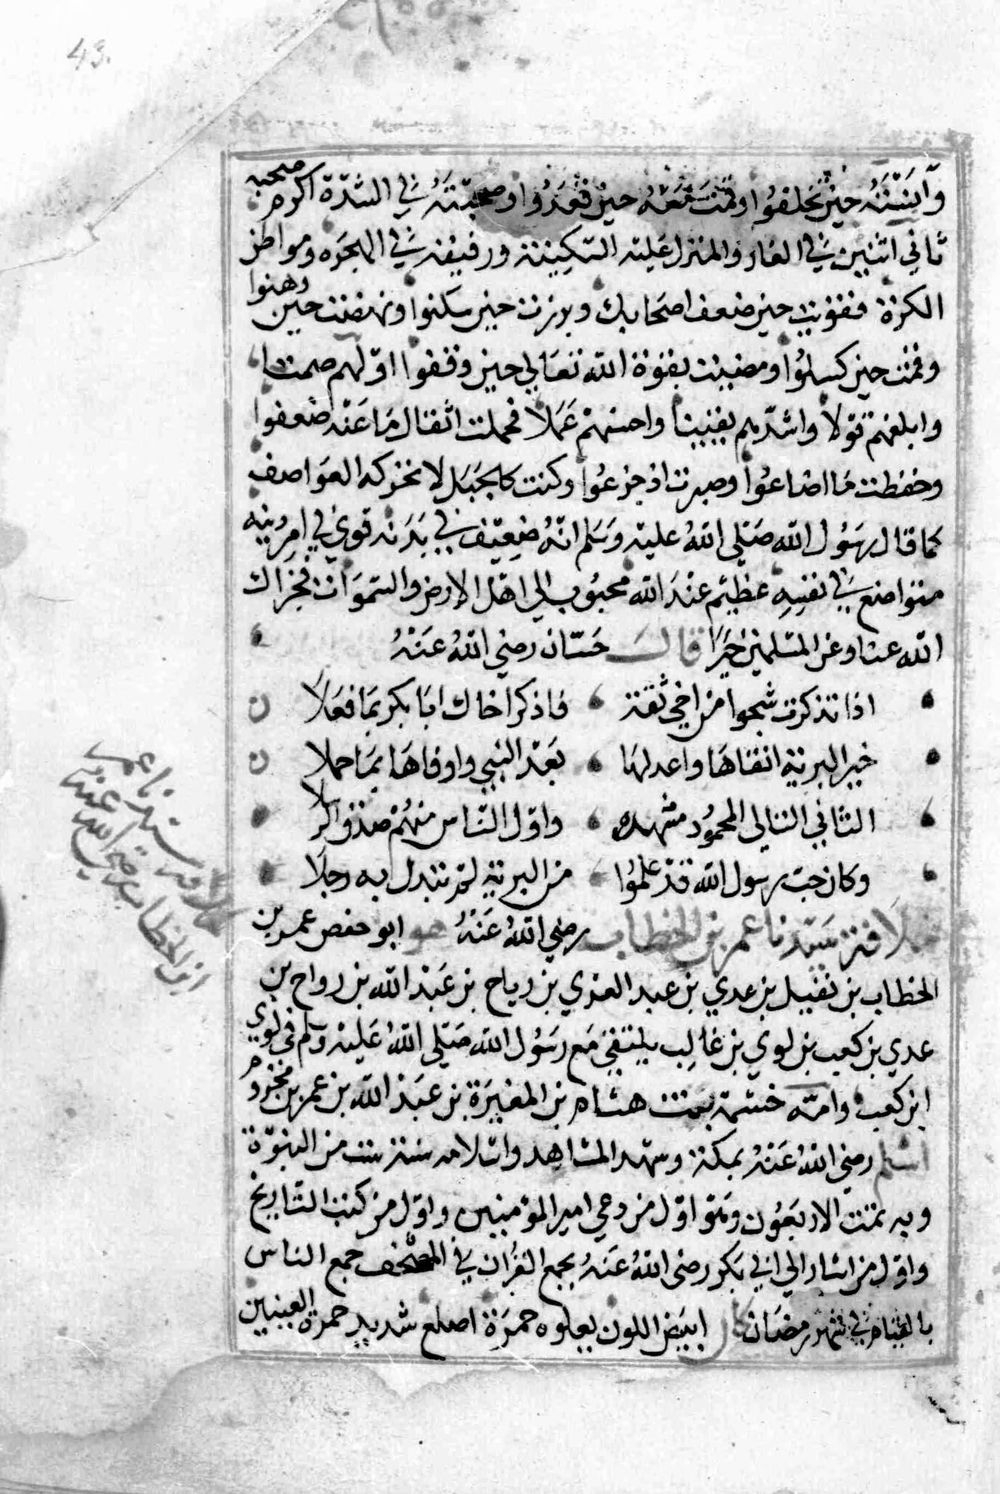 43.
وآنسته حين تخلفوا وقمت معه حين قعدوا وصحبته في الشدة اكرم صحبه
ثاني اثنين في الغار والمنزل عليه السكينة ورفيقه في الهجره ومواطن
الكرة فقويت حين ضعف اصحابك وبرزت حين سكنوا ونهضت حين وهنوا
وقمت حين كسلوا ومضيت بقوة الله تعالى حين وقفوا اولهم صمتا
وابلغهم قولا واشدهم يقينا واحسنهم عملا فحملت اثقال ما عنه ضعفوا
وحفظت ما اضاعوا وصبرت اذ جزعوا وكنت كالجبل لا تحركه العواصف
كما قال رسول الله صلى الله عليه وسلم انه ضعيف في بدنه قوي في امر دينه
متواضع في نفسه عظيم عند الله محبوب الى اهل الارض والسموات فجزاك
الله عنا وعن المسلمين خيرا قال حسان رضي الله عنه
اذا تذكرت شجوا من اخي ثقة فاذكر اخاك ابا بكر بما فعلا
خير البرية اتقاها واعدلها بعد النبي واوفاها بما حملا
الثاني التالي المحمود مشهده واول الناس منهم صدق الرسلا
وكان حب رسول الله قد علموا من البرية لم تبدل به رجلا
خلافة سيدنا عمر بن الخطاب رضي الله عنه هو ابو حفص عمر بن
الخطاب بن نفيل بن عدي بن عبد العزي بن رياح بن عبد الله بن رواح بن
عدي بن كعب بن لوي بن غالب يلتقي مع رسول الله صلى الله عليه وسلم في لوي
ابن كعب وامه خشمة بنت هشام بن المغيرة بن عبد الله بن عمر بن مخزوم
اسلم رضي الله عنه بمكة وشهد المشاهد واسلامه سنة ست من النبوة
وبه تمت الاربعون وهو اول من دعي امير المؤمنين واول من كتب التاريخ
واول من اشار الى ابي بكر رضى الله عنه بجمع القران في المصحف جمع الناس
بالقيام في شهر رمضان كان ابيض اللون يعلوه حمرة اصلع شديد حمرة العينين
خلافة سيدنا عمر
ابن الخطاب رضي الله عنه